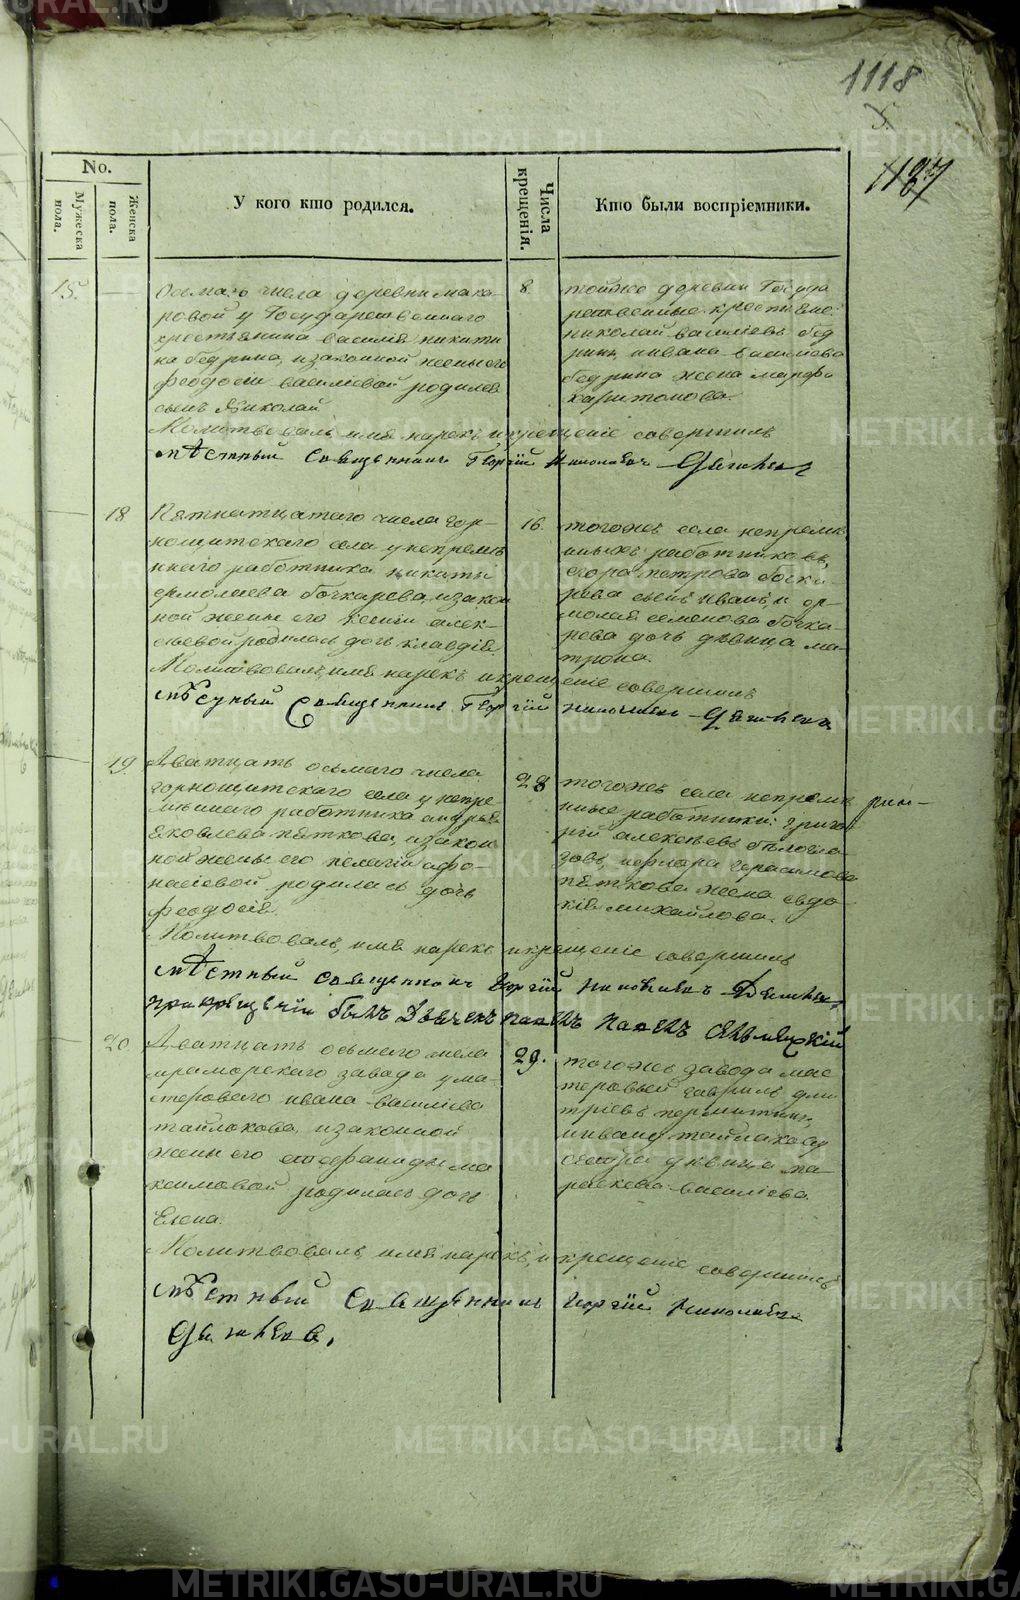 1118
1127
No.
Мужеска пола.
Женска пола.
У кого кто родился.
Числа крещенія.
Кто были воспріемники.
15.
Осьмаго числа деревни мака-
ровой у Государственнаго
крестьянина василія никити
на бедрина, изаконной жены его
феодосіи василіевой родился
сынъ Николай
8.
тойже деревни Госуда
рственные крестьяне:
николай василіевъ бед
ринъ, ивана василіева
бедрина жена марфа
харитонова.
Молитвовалъ, имя нарекъ икрещеніе совершилъ
мѣстный Священникъ Георгій Николаевъ
18
Пятнатцатаго числа гор-
нощитскаго села у непремѣ
ннаго работника никиты
ермолаева бочкарева, изакон
ной жены его ксеніи алек-
сѣевой родилась дочь клавдія.
16.
тогожъ села непремѣ
нныхъ работниковъ,
егора петрова бочка-
рева сынъ Иванъ, и ер-
молая семенова бочка-
рева дочь дѣвица ма-
трона.
Молитвовалъ, имя нарекъ икрещеніе совершилъ
мѣстный Священникъ Георгій Николаевъ
19.
Дватцать осьмаго числа
горнощитскаго села у непре-
мѣннаго работника андрея
Яковлева пяткова, изакон
ной жены его пелагіи афо-
насіевой родилась дочь
феодосія.
28
тогожъ села непремѣ
нные работники: григо-
рій алексѣевъ бѣлогла-
зовъ, ифлора герасимова
пяткова жена евдо-
кія михайлова.
Молитвовалъ, имя нарекъ икрещеніе совершилъ
мѣстный священникъ Георгій Николаевъ
прикрещеніи былъ Дьячекъ Павелъ
20
Дватцать осьмаго числа
мраморскаго завода у ма-
стероваго ивана василіева
тайлакова, изаконной
жены его ма
ксимовой родилась дочь
Елена.
29.
тогожъ завода мас
теровый гаврилъ дми
тріевъ
ивана тайлакова
сестра дѣвица па-
раскева василіева.
Молитвовалъ, имя нарекъ, и крещеніе совершилъ
мѣстный Священникъ Георгій Николаевъ
METRIKI.GASO-URAL.RU